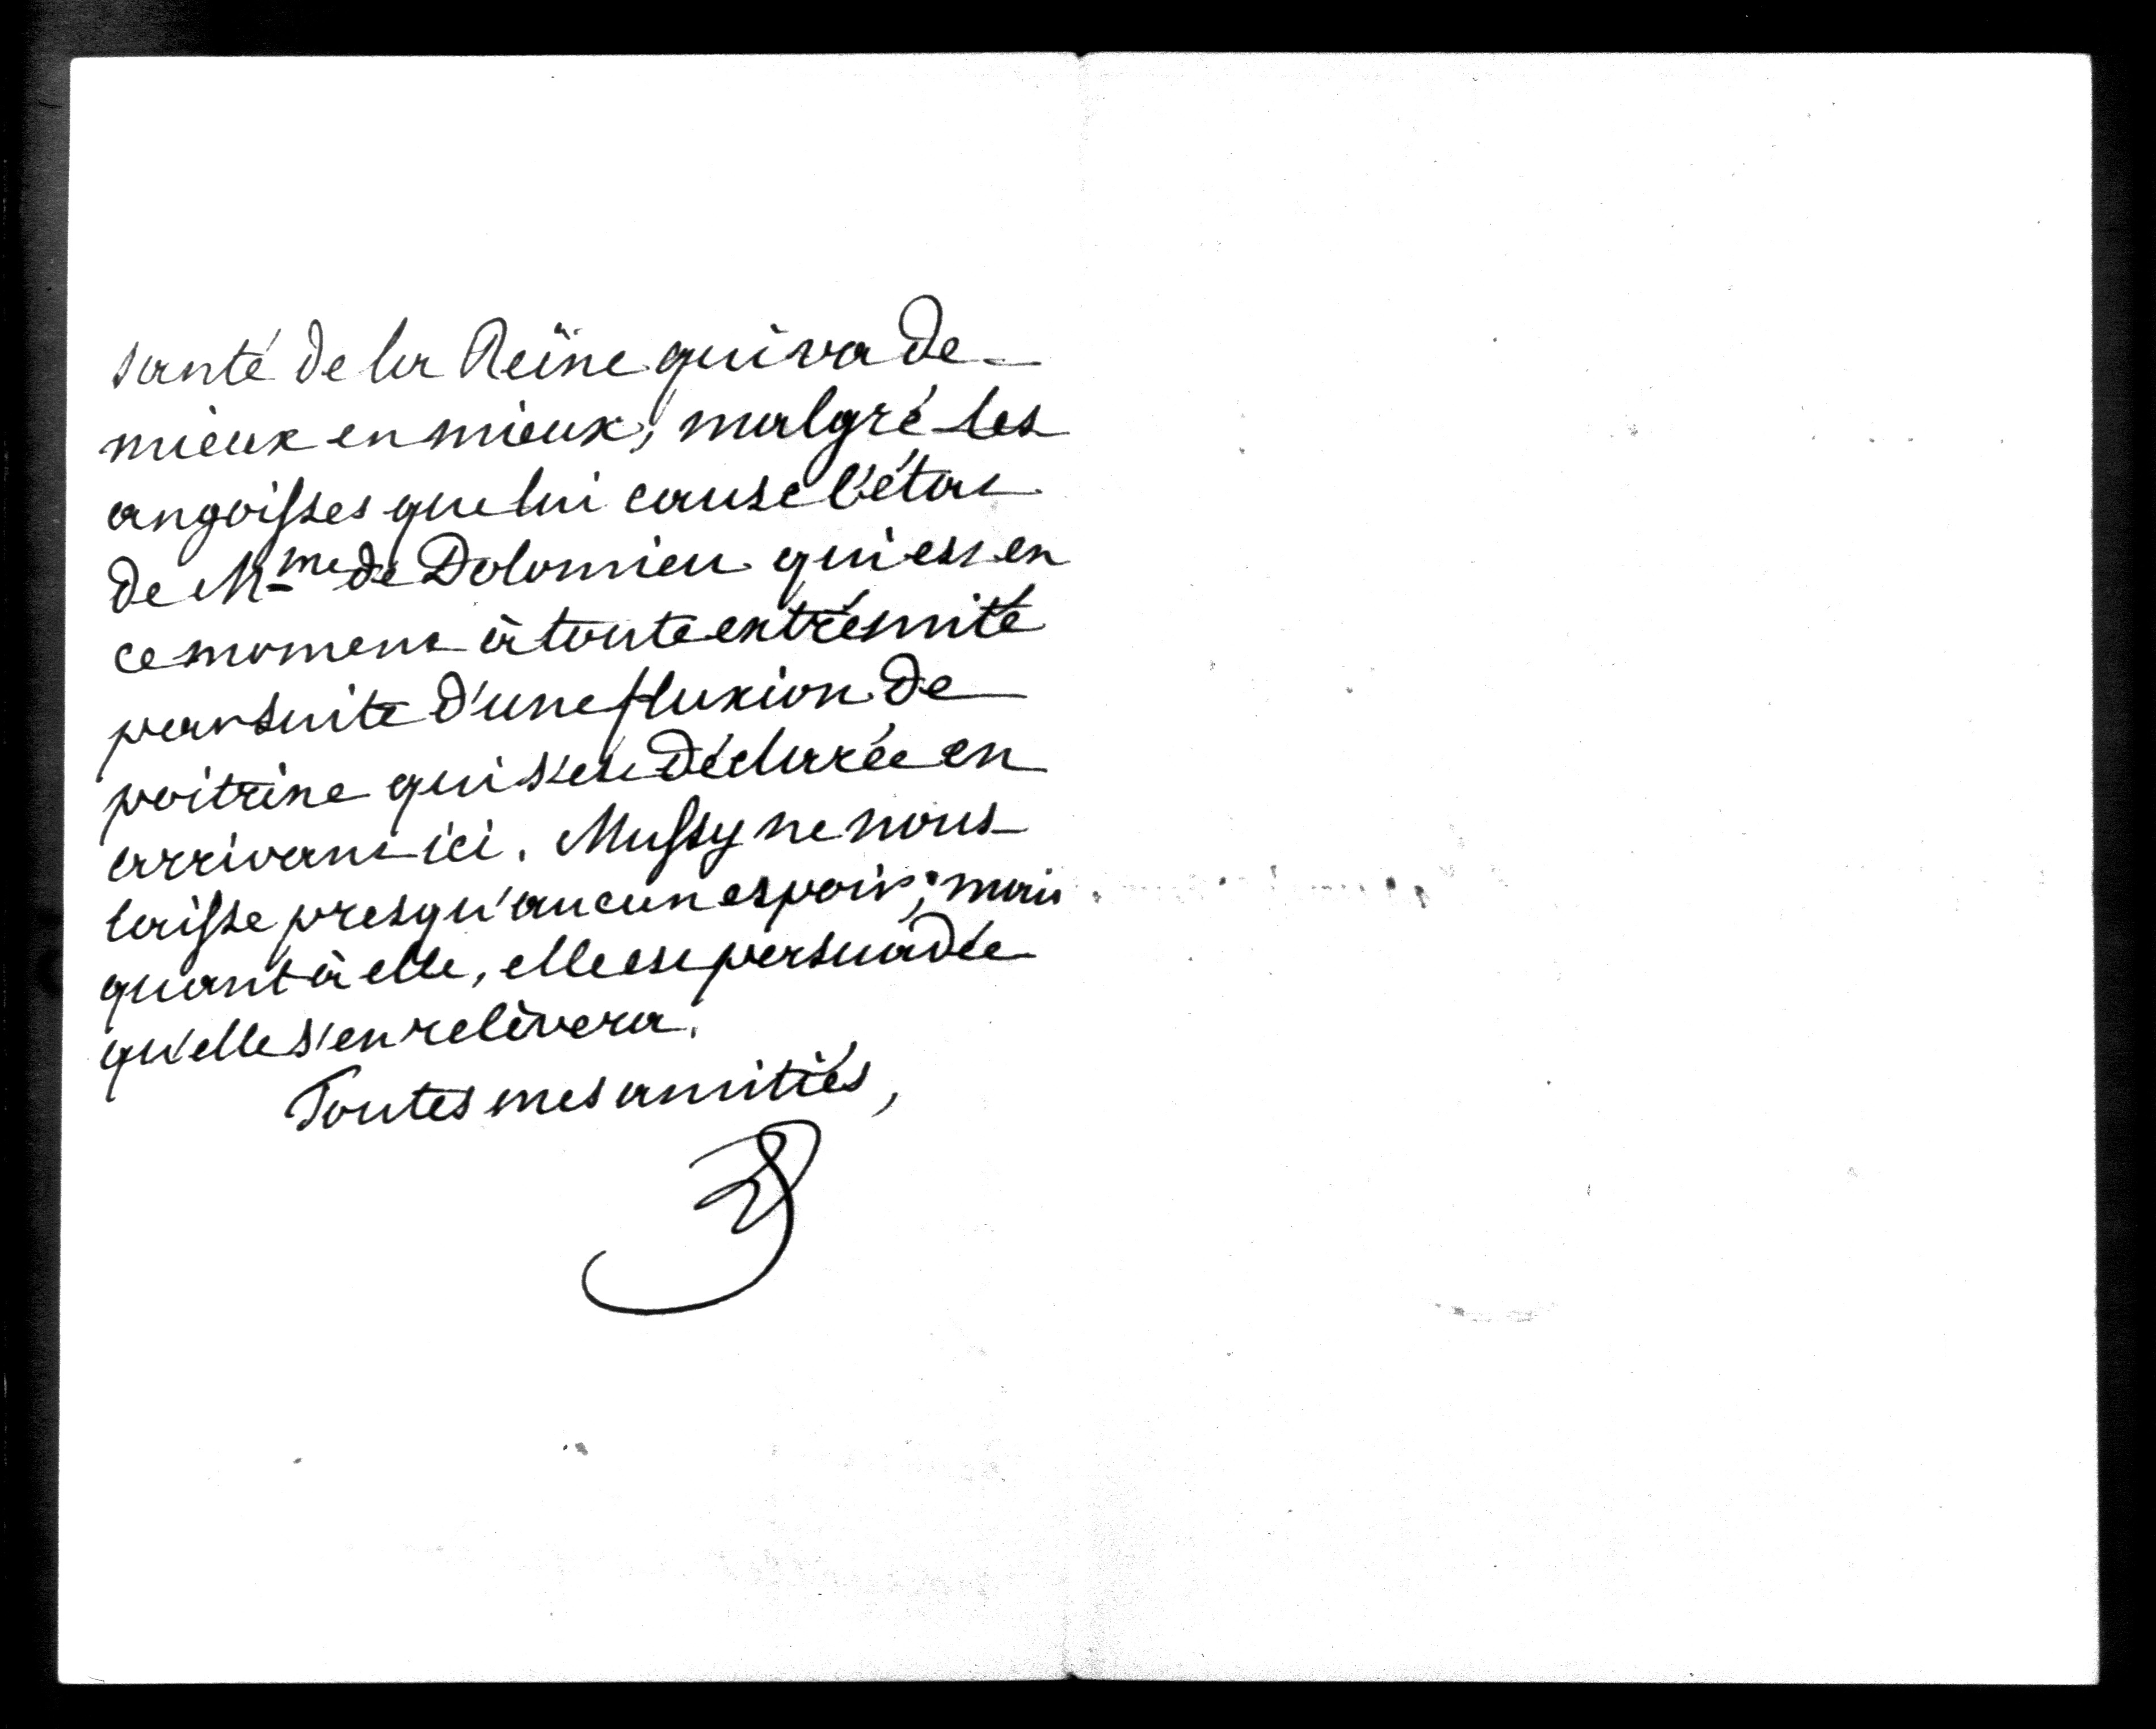 santé de la Reïne qui va de
mieux en mieux, malgré les
angoisses que lui cause l'état
de Mme de Dolomieu qui est en
ce moment à toute extrémité
par suite d'une fluxion de
poitrine qui s'est déclarée en
arrivant ici. Mussy ne nous
laisse presqu'aucun espoir; mais
quant à elle, elle est persuadée
qu'elle s'en relèvera.
Toutes mes amitiés,